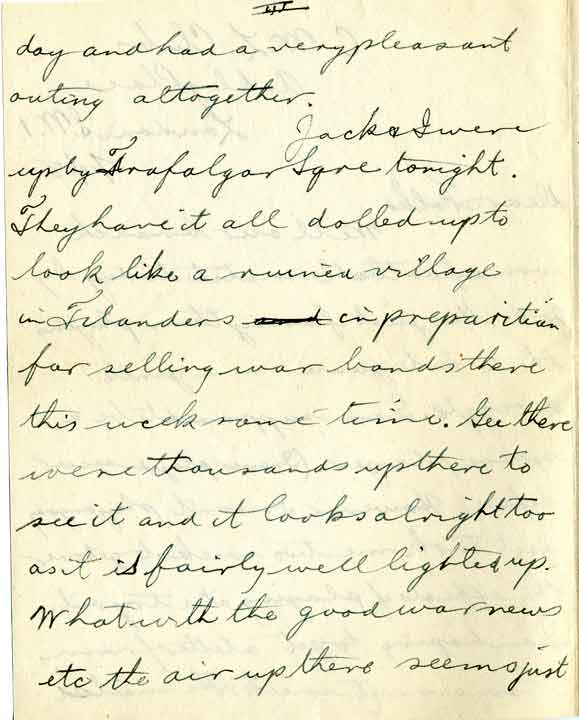 III
day and had a very pleasant
outing altogether.
Jack & I were
up by Trafalgar Sqre tonight.
They have it all dolled up to
look like a ruined village
in Flanders and in preparitian
for selling war bonds there
this week some time. Gee there
were thousands up there to
see it and it looks alright too
as it is fairly well lighted up.
What with the good war news
etc the air up there seems just